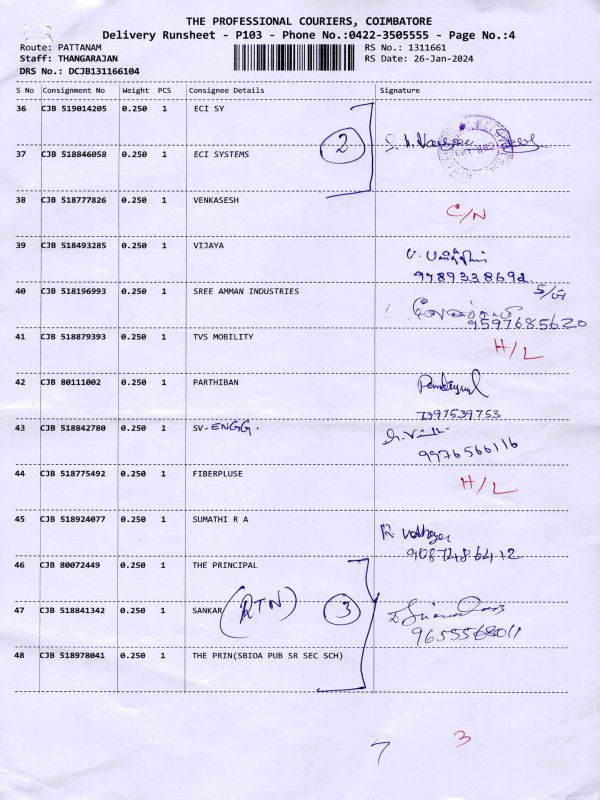 THE PROFESSIONAL COURIERS, COIMBATORE
Delivery Runsheet - P103 - Phone No.:0422-3505555 - Page No.:4
Route: PATTANAM RS No.: 1311661
Staff: THANGARAJAN RS Date: 26-Jan-2024
DRS No.: DCJB131166104
S No Consignment No Weight PCS Consignee Details Signature
36 CJB 519014205 0.250 1 ECI SY
2
37 CJB 518846058 0.250 1 ECI SYSTEMS
38 CJB 518777826 0.250 1 VENKASESH
C/N
39 CJB 518493285 0.250 1 VIJAYA
9789338692
40 CJB 518196993 0.250 1 SREE AMMAN INDUSTRIES
9597685620
41 CJB 518879393 0.250 1 TVS MOBILITY
H/L
42 CJB 80111002 0.250 1 PARTHIBAN
7397539753
43 CJB 518842780 0.250 1 SV. ENGG.
9976566116
44 CJB 518775492 0.250 1 FIBERPLUSE
H/L
45 CJB 518924077 0.250 1 SUMATHI R A
9087486412
46 CJB 80072449 0.250 1 THE PRINCIPAL
47 CJB 518841342 0.250 1 SANKAR (RTN) 3
9655568011
48 CJB 518978041 0.250 1 THE PRIN(SBIOA PUB SR SEC SCH)
7 3